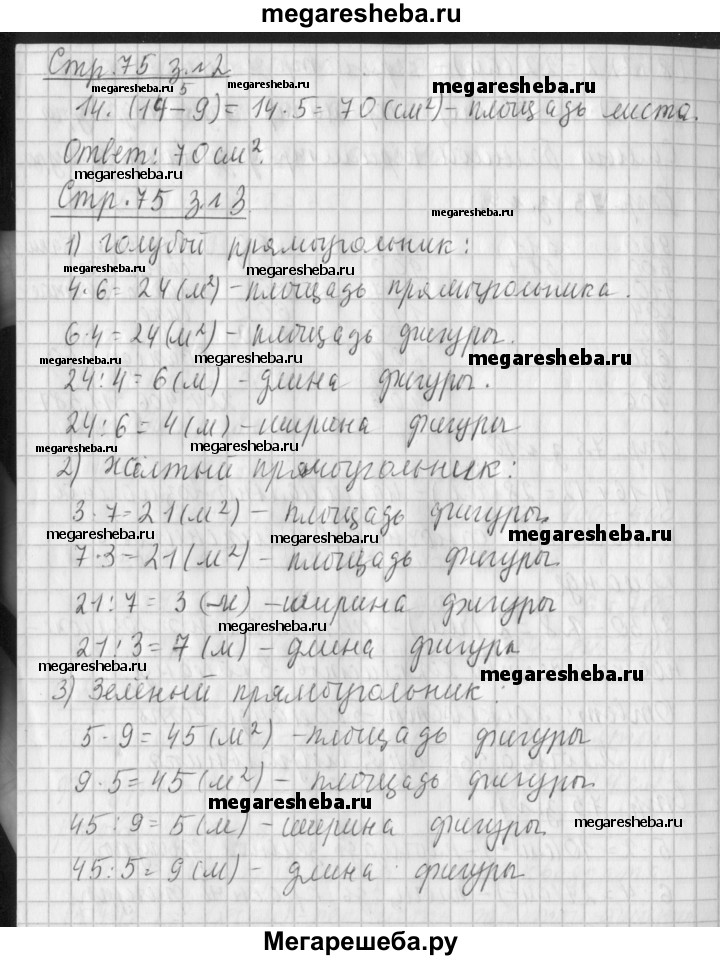 megaresheba.ru
Стр. 75 з. №2
megaresheba.ru
megaresheba.ru
5
14 · (14 - 9) = 14 · 5 = 70 (см²) - площадь листа.
Ответ: 70 см².
megaresheba.ru
Стр. 75 з. №3
megaresheba.ru
1) голубой прямоугольник:
megaresheba.ru
megaresheba.ru
4 · 6 = 24 (м²) - площадь прямоугольника.
6 · 4 = 24 (м²) - площадь фигуры.
megaresheba.ru
megaresheba.ru
megaresheba.ru
24 : 4 = 6 (м) - длина фигуры.
24 : 6 = 4 (м) - ширина фигуры
megaresheba.ru
megaresheba.ru
2) Жёлтый прямоугольник:
3 · 7 = 21 (м²) - площадь фигуры.
megaresheba.ru
megaresheba.ru
megaresheba.ru
7 · 3 = 21 (м²) - площадь фигуры.
21 : 7 = 3 (м) - ширина фигуры
megaresheba.ru
21 : 3 = 7 (м) - длина фигура
megaresheba.ru
megaresheba.ru
3) Зелёный прямоугольник:
5 · 9 = 45 (м²) - площадь фигуры
9 · 5 = 45 (м²) - площадь фигуры.
megaresheba.ru
45 : 9 = 5 (м) - ширина фигуры.
megaresheba.ru
45 : 5 = 9 (м) - длина фигуры
Мегарешеба.ру